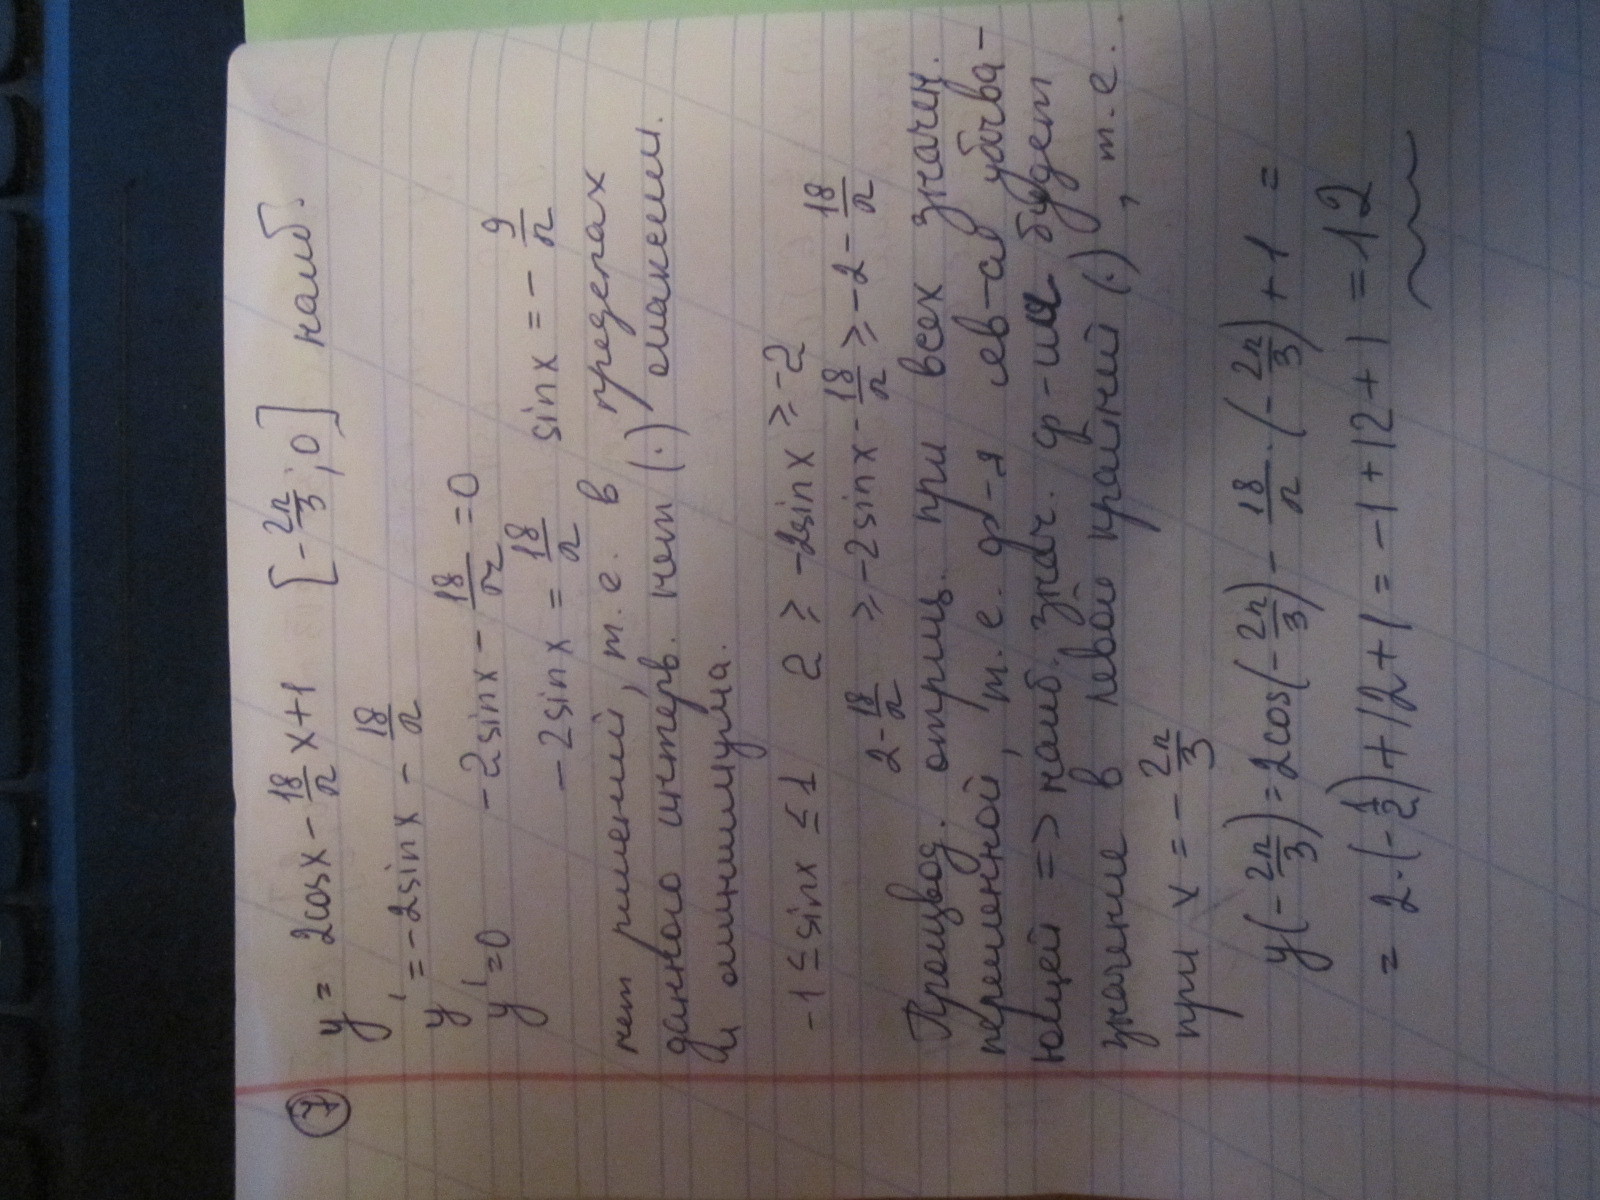 ⑦ y = 2cosx - 18/π x + 1 [-2π/3; 0] наиб.
y' = -2sinx - 18/π
y' = 0 -2sinx - 18/π = 0
-2sinx = 18/π sinx = - 9/π
нет решений, т.е. в пределах
данного интерв. нет (·) максим.
и минимума.
-1 ≤ sinx ≤ 1 2 ≥ -2sinx ≥ -2
2 - 18/π ≥ -2sinx - 18/π ≥ -2 - 18/π
Производ. отриц. при всех значен.
переменной, т.е. ф-я яв-ся убыва-
ющей => наиб. знач. ф-ии будет
значение в левой крайней (·), т.е.
при x = - 2π/3
y(- 2π/3) = 2cos(- 2π/3) - 18/π · (- 2π/3) + 1 =
= 2·(- 1/2) + 12 + 1 = -1 + 12 + 1 = 12